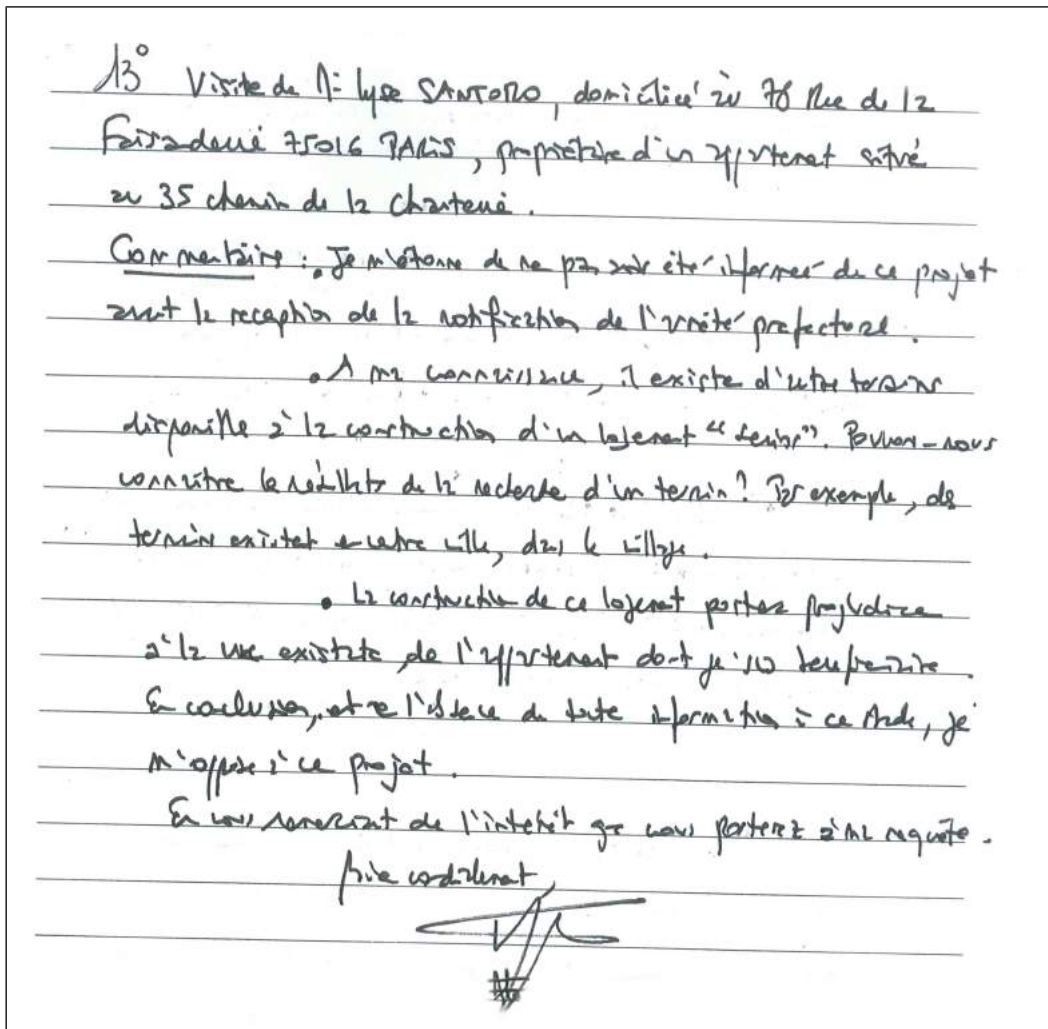 13° Visite de Mr Lyse SANTORO, domicilié au 76 Rue de la
75016 PARIS, propriétaire d'un appartement situé
au 35 chemin de la Chartreuse.
Commentaire : . Je m'étonne de ne pas avoir été informé de ce projet
avant la reception de la notification de l'arrêté prefectoral.
. A ma connaissance, il existe d'autre terrains
disponible à la construction d'un logement "senior". Pouvons-nous
connaître le résultats de la recherche d'un terrain ? Par exemple, des
terrain existent en centre ville, dans le village.
. La construction de ce logement portera prejudice
à la vue existante de l'appartement dont je suis
En conclusion, et l'absence de toute information à ce stade, je
m'oppose à ce projet.
En vous remerciant de l'interêt que vous porterez à ma requête.
Bien cordialement